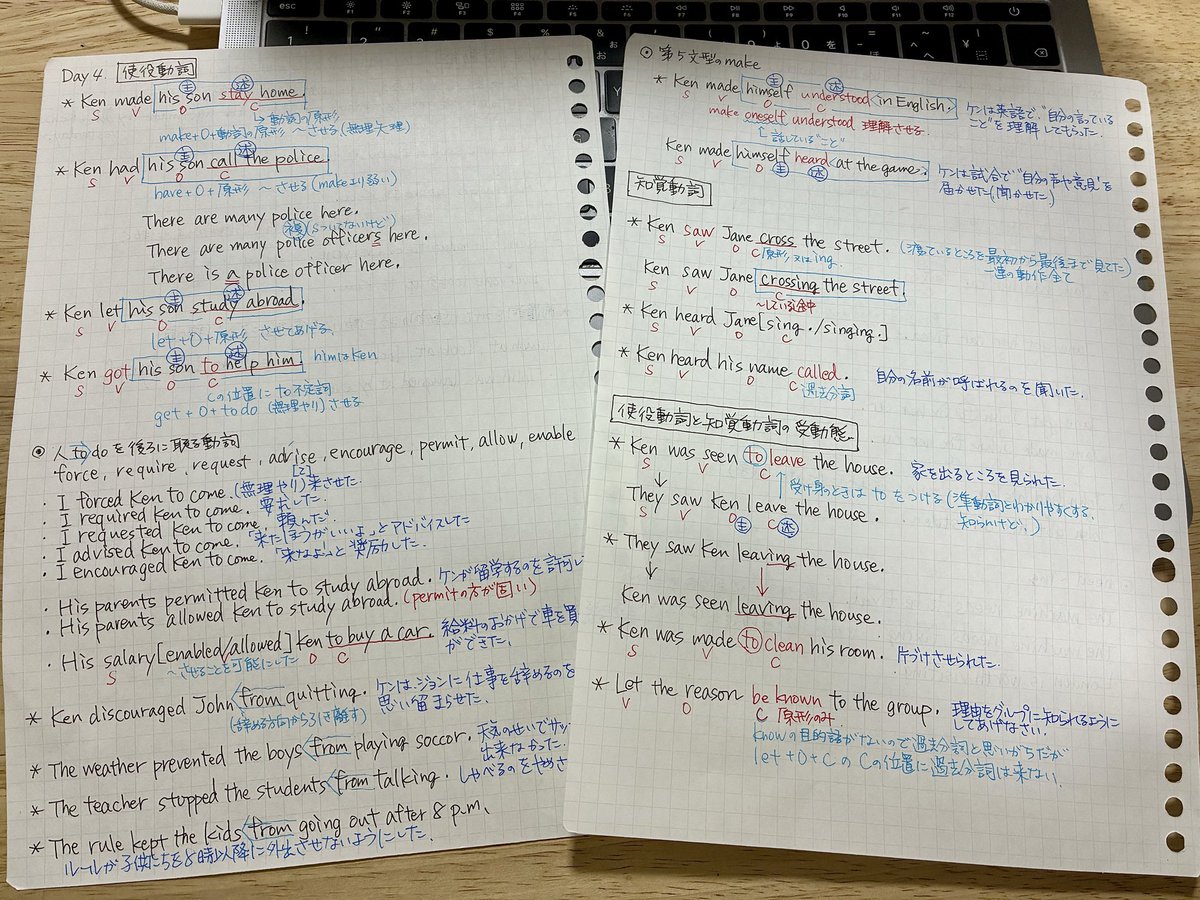 Day 4. 使役動詞
主 述
* Ken made his son stay home.
S V O C
↳動詞の原形
make+O+動詞の原形 ~させる(無理矢理)
主 述
* Ken had his son call the police.
S V O C
have+O+原形 ~させる(makeより弱い)
There are many police here.
複(sついてないけど)
There are many police officers here.
There is a police officer here.
主 述
* Ken let his son study abroad.
S V O C
let+O+原形 させてあげる。
主 述
* Ken got his son to help him. himはKen
S V O C
Cの位置にto不定詞
get+O+to do (無理やり)させる
◎ 人 to do を後ろに取る動詞
force, require, request, advise, encourage, permit, allow, enable
[z]
・I forced Ken to come. (無理やり)来させた。
・I required Ken to come. 要求した。
・I requested Ken to come. 頼んだ。
・I advised Ken to come. 「来たほうがいいよ」とアドバイスした
・I encouraged Ken to come. 「来なよ」と奨励した。
・His parents permitted Ken to study abroad. ケンが留学するのを許可し
・His parents allowed Ken to study abroad. (permitの方が固い)
・His salary [enabled/allowed] Ken to buy a car. 給料のおかげで車を買
S V O C
~させることを可能にした
ができた。
* Ken discouraged John from quitting. ケンは、ジョンに仕事を辞めるのを
(辞める方向から引き離す)
思い留まらせた。
* The weather prevented the boys from playing soccor. 天気のせいでサッ
出来なかった。
* The teacher stopped the students from talking. しゃべるのをやめさ
* The rule kept the kids from going out after 8 p.m.
ルールが子供たちを8時以降に外出させないようにした。
◎ 第5文型のmake
主 述
* Ken made himself understood in English.
S V O C
ケンは英語で"自分の言っている
こと"を理解してもらった.
make oneself understood 理解させる
↑話している"こと"
Ken made himself heard at the game.
S V O C
主 述
ケンは試合で"自分の声や意見"を
届かせた(聞かせた)
知覚動詞
* Ken saw Jane cross the street. (渡ているところを最初から最後まで見てた)
S V O C原形 又はing.
一連の動作全て
Ken saw Jane crossing the street.
S V O C
~している途中
* Ken heard Jane [sing./singing.]
S V O C
* Ken heard his name called. 自分の名前が呼ばれるのを聞いた.
S V O C過去分詞
使役動詞と知覚動詞の受動態
* Ken was seen to leave the house. 家を出るところを見られた.
S V C
↑受け身のときは to をつける(準動詞とわかりやすくする
知らんけど。)
They saw Ken leave the house.
S V O C
主 述
* They saw Ken leaving the house.
Ken was seen leaving the house.
* Ken was made to clean his room. 片づけさせられた.
S V C
* Let the reason be known to the group. 理由をグループに知られるように
V O C 原形のみ
してあげなさい.
knowの目的語がないので過去分詞と思いがちだが
let+O+CのCの位置に過去分詞は来ない.